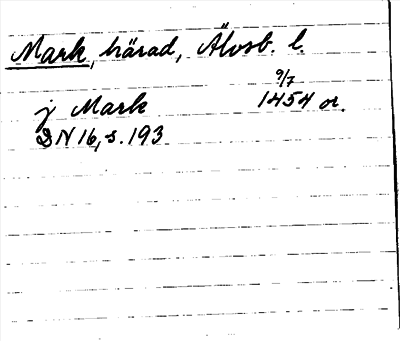 Mark, härad, Älvsb. l.
j Mark 9/7 1454 or.
DN 16, s. 193